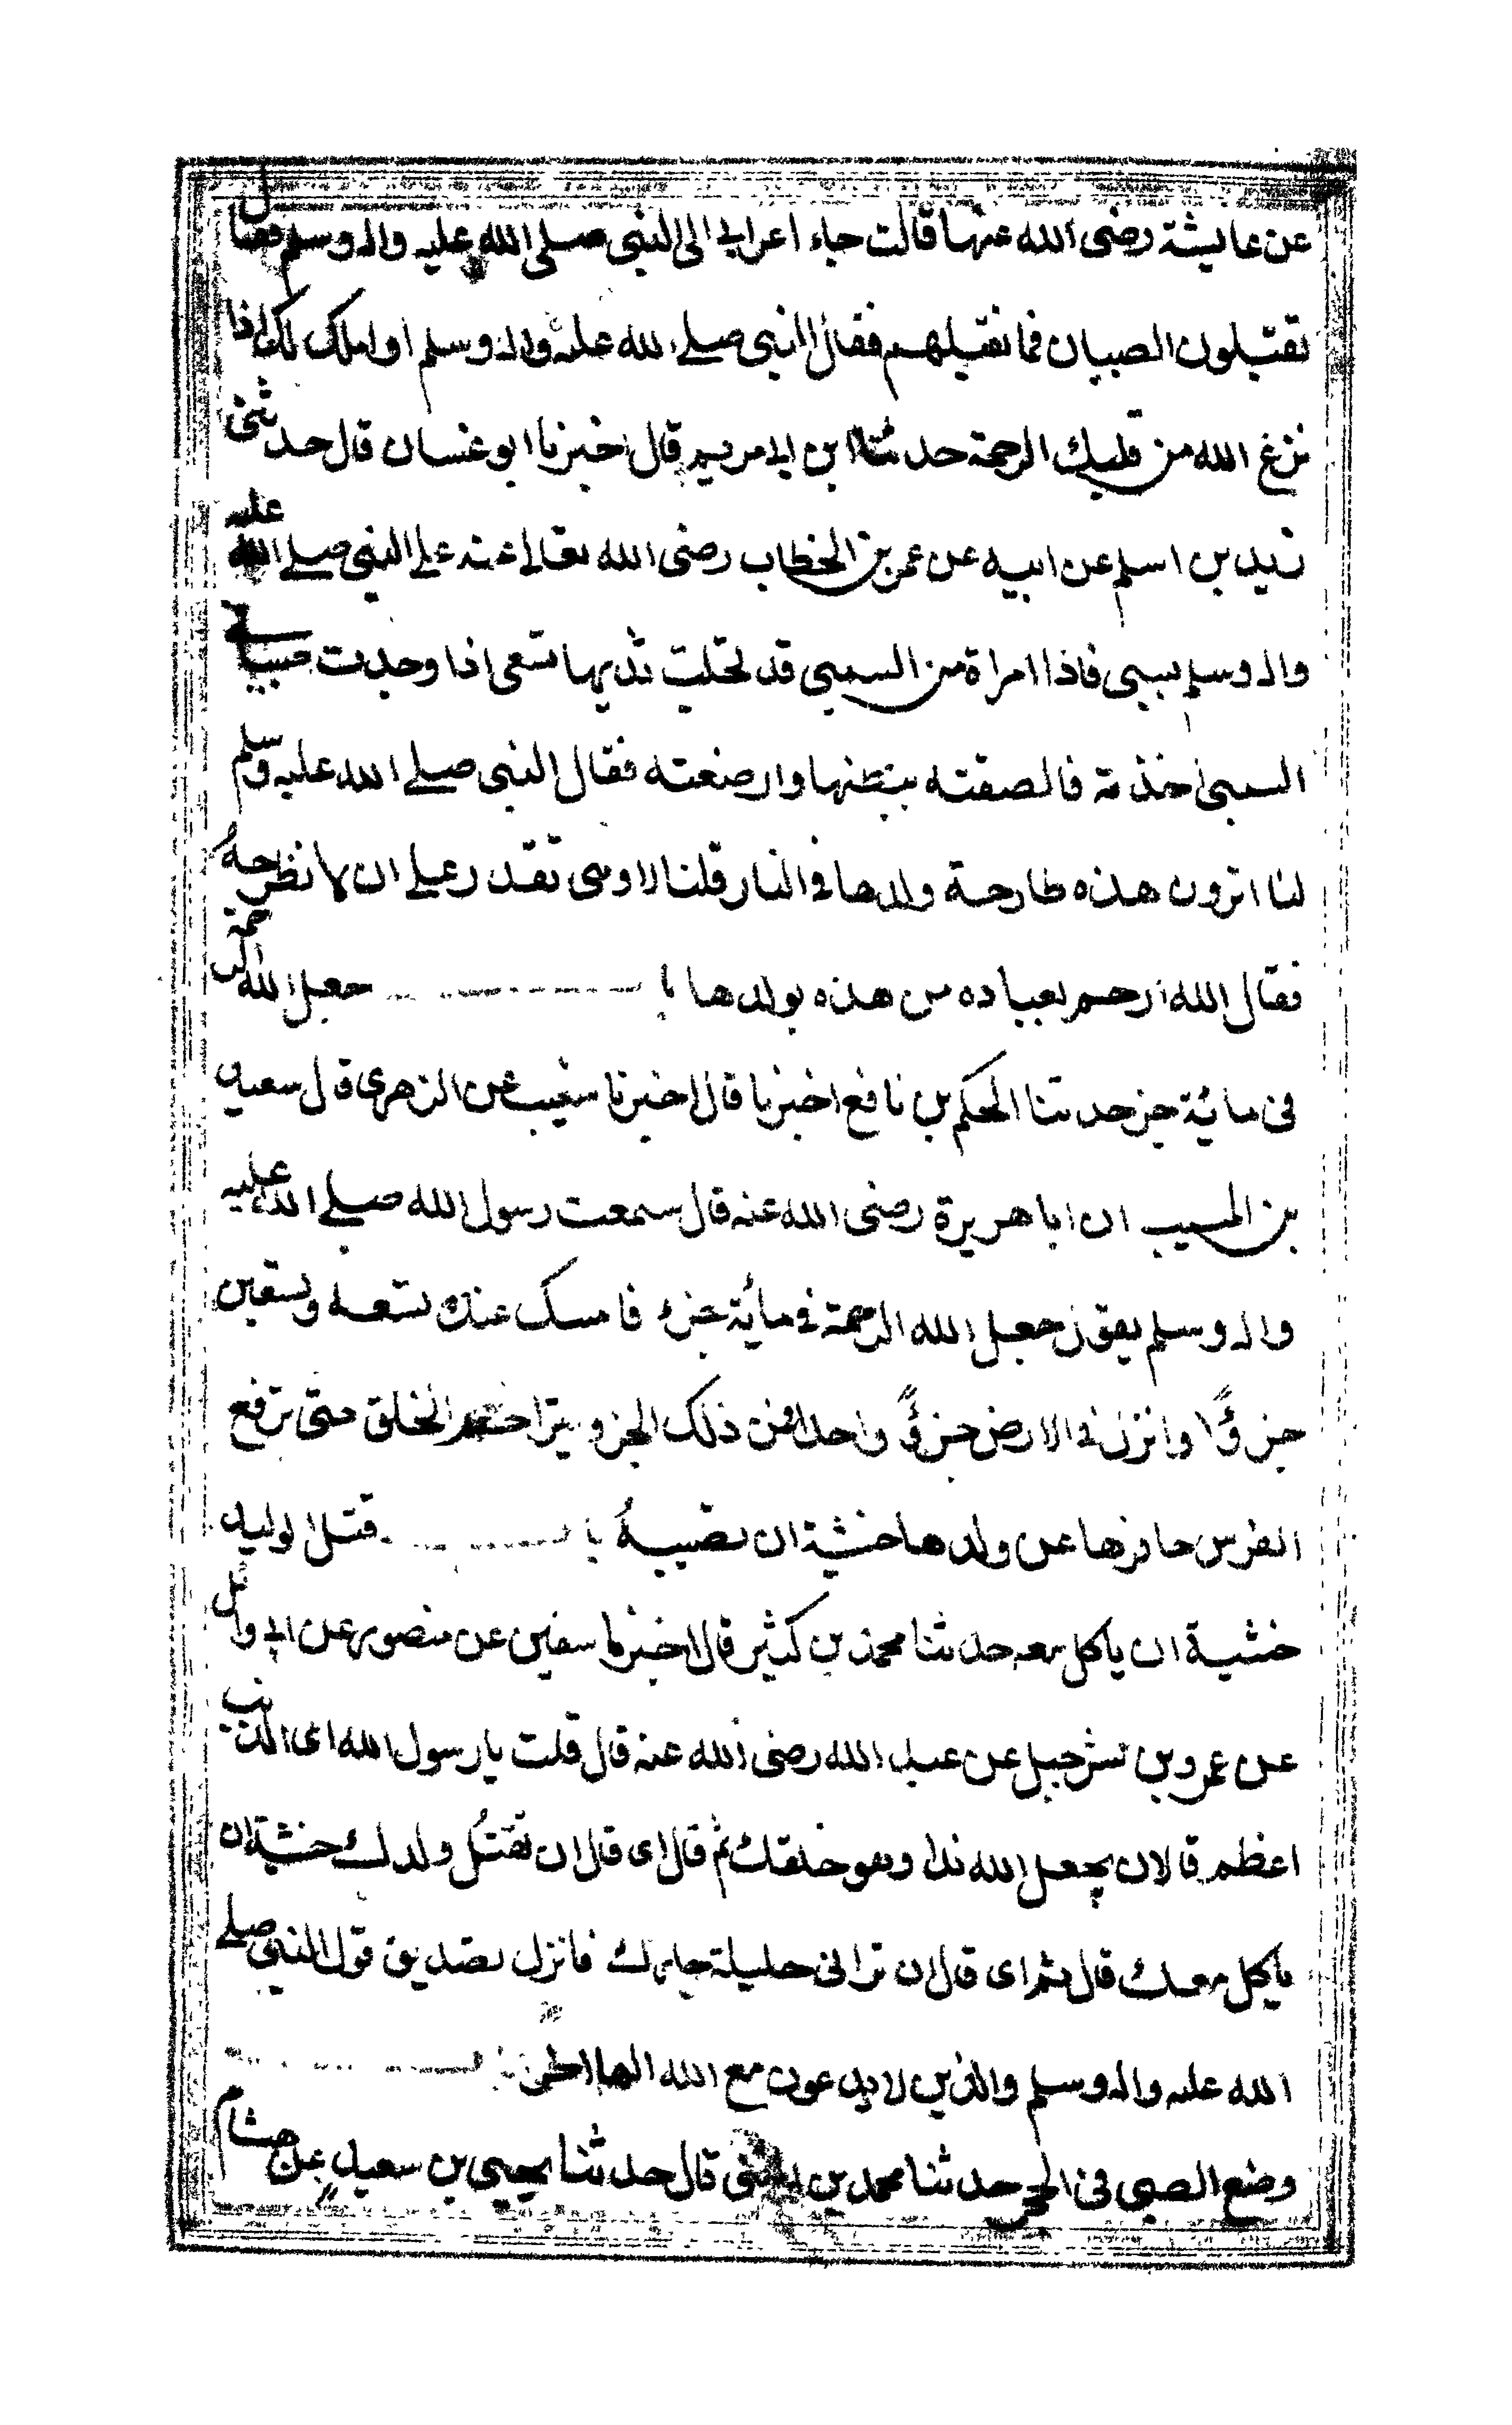 عن عايشة رضى الله عنها قالت جاء اعرابى الى النبى صلى الله عليه واله وسلم فقال
تقتبلون الصبيان فما نقتبلهم فقال النبى صلے الله عليه واله وسلم او املك لك اذا
نزغ الله من قلبك الرحمة حدثنا ابن ابى مريم قال اخبرنا ابو غسان قال حدثنى
زيد بن اسلم عن ابيه عن عمر بن الخطاب رضى الله تعالى عنه على النبى صلے الله عليه
واله وسلم بسبى فاذا امراة من السبى قد تحلب ثديها تسعى اذا وجدت صبيا فى
السبى اخذته فالصقته ببطنها وارضعته فقال النبى صلے الله عليه وسلم
لنا اترون هذه طارحة ولدها فى النار قلنا لا وهى تقدر على ان لا تطرحه
فقال الله ارحم بعباده من هذه بولدها با ب جعل الله الرحمة
فى مائة جز حدثنا الحكم بن نافع اخبرنا قال اخبرنا شعيب عن الزهرى قال سعيد
بن المسيب ان ابا هريرة رضى الله عنه قال سمعت رسول الله صلے الله عليه
واله وسلم يقول جعل الله الرحمة فى مائة جزء فامسك عنده تسعة وتسعين
جزؤًا وانزل فى الارض جزؤً واحدا فمن ذلك الجزو يتراحم الخلق حتى ترفع
الفرس حافرها عن ولدها خشية ان تصيبهُ با ب قتل الوليد
خشية ان ياكل معه حدثنا محمد بن كثير قال اخبرنا سفين عن منصور عن ابى وائل
عن عمرو بن شرحبيل عن عبد الله رضى الله عنه قال قلت يا رسول الله اى الذنب
اعظم قال ان يجعل لله ندا وهو خلقك ثم قال اى قال ان تقتُل ولدك خشية ان
ياكل معك قال ثم اى قال ان تزانى حليلة جارك فانزل تصديق قول النبى صلے
الله عليه واله وسلم والذين لا يدعون مع الله الها اخر با ب
وضع الصبى فى الحجر حدثنا محمد بن المثنى قال حدثنا يحيى بن سعيد عن هشام